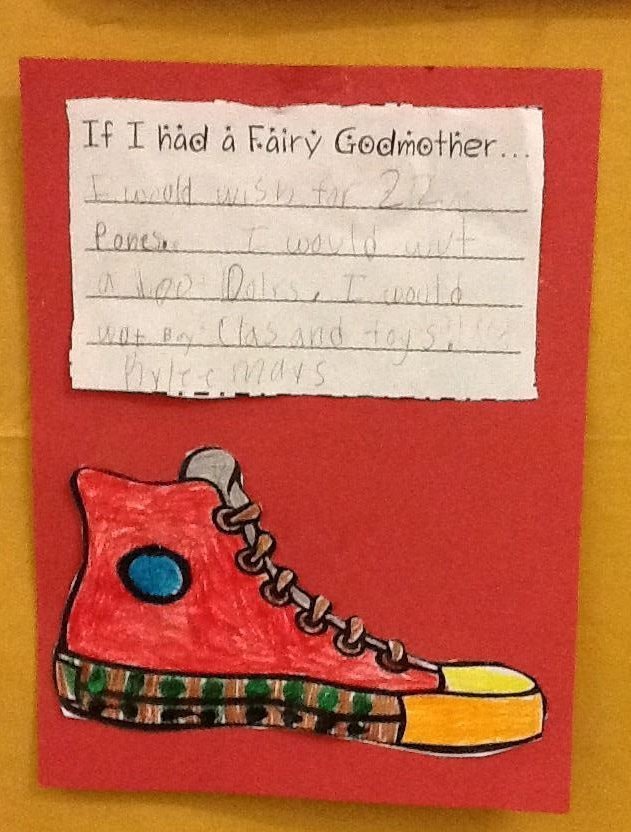 If I had a Fairy Godmother...
I would wish for 22
Pones. I would wut
a 100 Dolrs, I would
wut Clas and toys.
Kylee mays